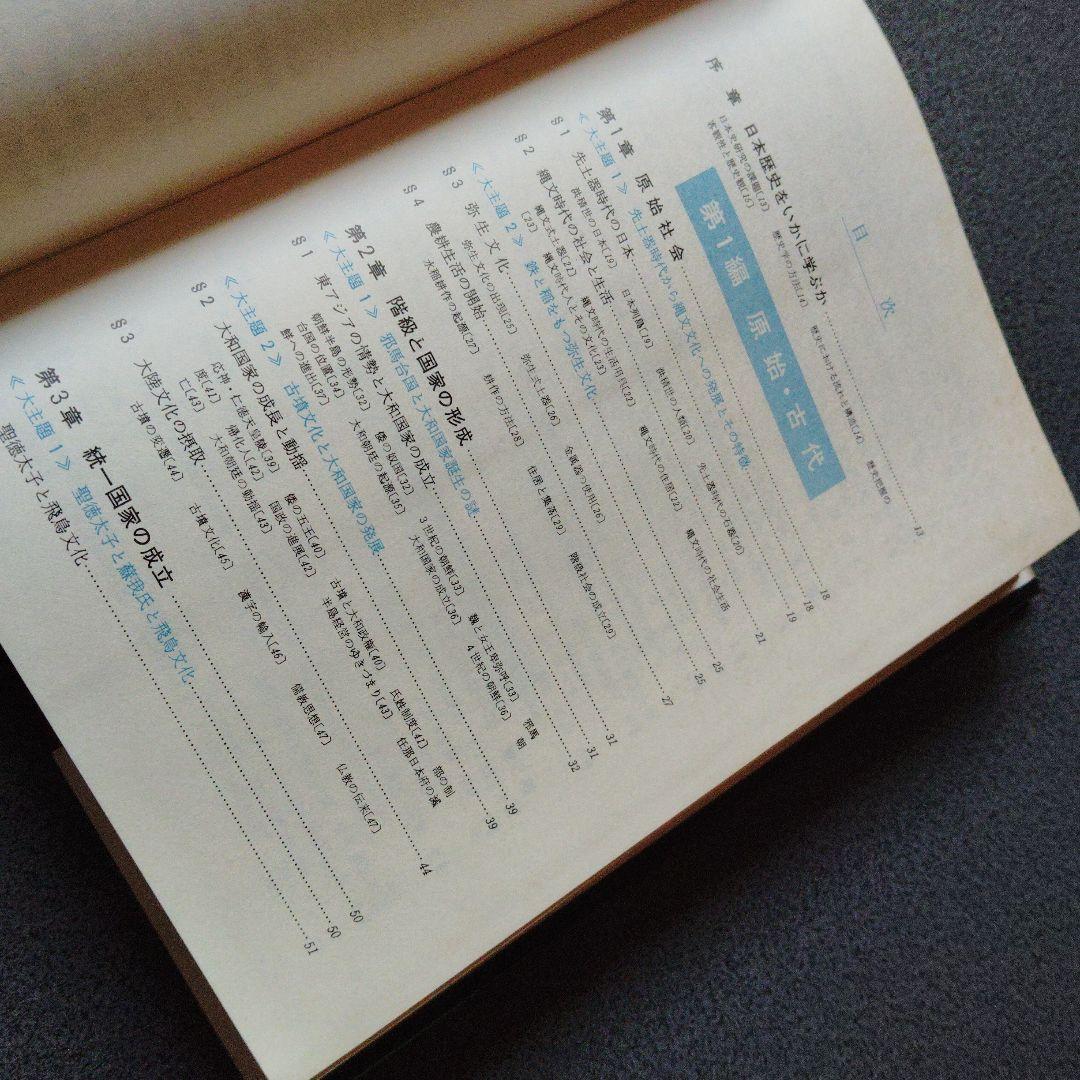 目次
序章 日本歴史をいかに学ぶか 13
日本史研究の課題〔13〕 歴史学の方法〔14〕 歴史における流れと構造〔14〕 歴史把握の
客観性と歴史観〔15〕
第1編 原始・古代
第1章 原始社会 18
《大主題1》 先土器時代から縄文文化への発展とその特徴 18
§1 先土器時代の日本 19
洪積世の日本〔19〕 日本列島〔19〕 洪積世の人類〔20〕 先土器時代の石器〔20〕
§2 縄文時代の社会と生活 21
縄文式土器〔21〕 縄文時代の生活用具〔22〕 縄文時代の住居〔22〕 縄文時代の社会生活
〔23〕 縄文時代人とその文化〔23〕
《大主題2》 鉄と稲をもつ弥生文化 25
§3 弥生文化 25
弥生文化の出現〔25〕 弥生式土器〔26〕 金属器の使用〔26〕
§4 農耕生活の開始 27
水稲耕作の起源〔27〕 耕作の方法〔28〕 住居と集落〔29〕 階級社会の成立〔29〕
第2章 階級と国家の形成 31
《大主題1》 邪馬台国と大和国家誕生の謎 31
§1 東アジアの情勢と大和国家の成立 32
朝鮮半島の形勢〔32〕 倭の奴国〔32〕 3世紀の朝鮮〔33〕 魏と女王卑弥呼〔33〕 邪馬
台国の位置〔34〕 大和朝廷の起源〔35〕 大和国家の成立〔36〕 4世紀の朝鮮〔36〕 朝
鮮への進出〔37〕
《大主題2》 古墳文化と大和国家の発展 39
§2 大和国家の成長と動揺 39
応神・仁徳天皇陵〔39〕 倭の五王〔40〕 古墳と大和政権〔40〕 氏姓制度〔41〕 部の制
度〔41〕 帰化人〔42〕 国政の進展〔42〕 半島経営のゆきづまり〔43〕 任那日本府の滅
亡〔43〕 大和朝廷の動揺〔43〕
§3 大陸文化の摂取 44
古墳の変遷〔44〕 古墳文化〔45〕 漢字の輸入〔46〕 儒教思想〔47〕 仏教の伝来〔47〕
第3章 統一国家の成立 50
《大主題1》 聖徳太子と蘇我氏と飛鳥文化 50
聖徳太子と飛鳥文化 51